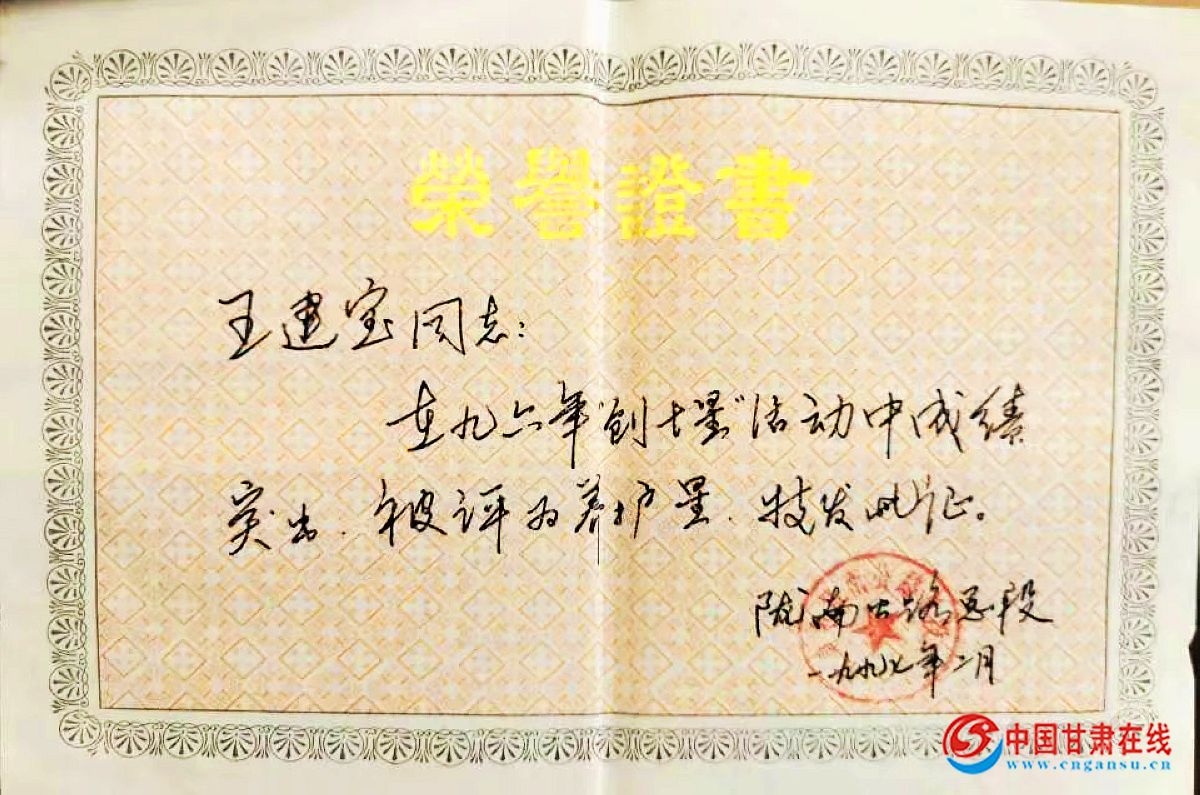 榮譽證書
王建宝同志：
在九六年“创十星”活动中成绩
突出．被评为养护星．特发此证。
陇南公路总段
一九九七年二月
中国甘肃在线
www.cngansu.cn